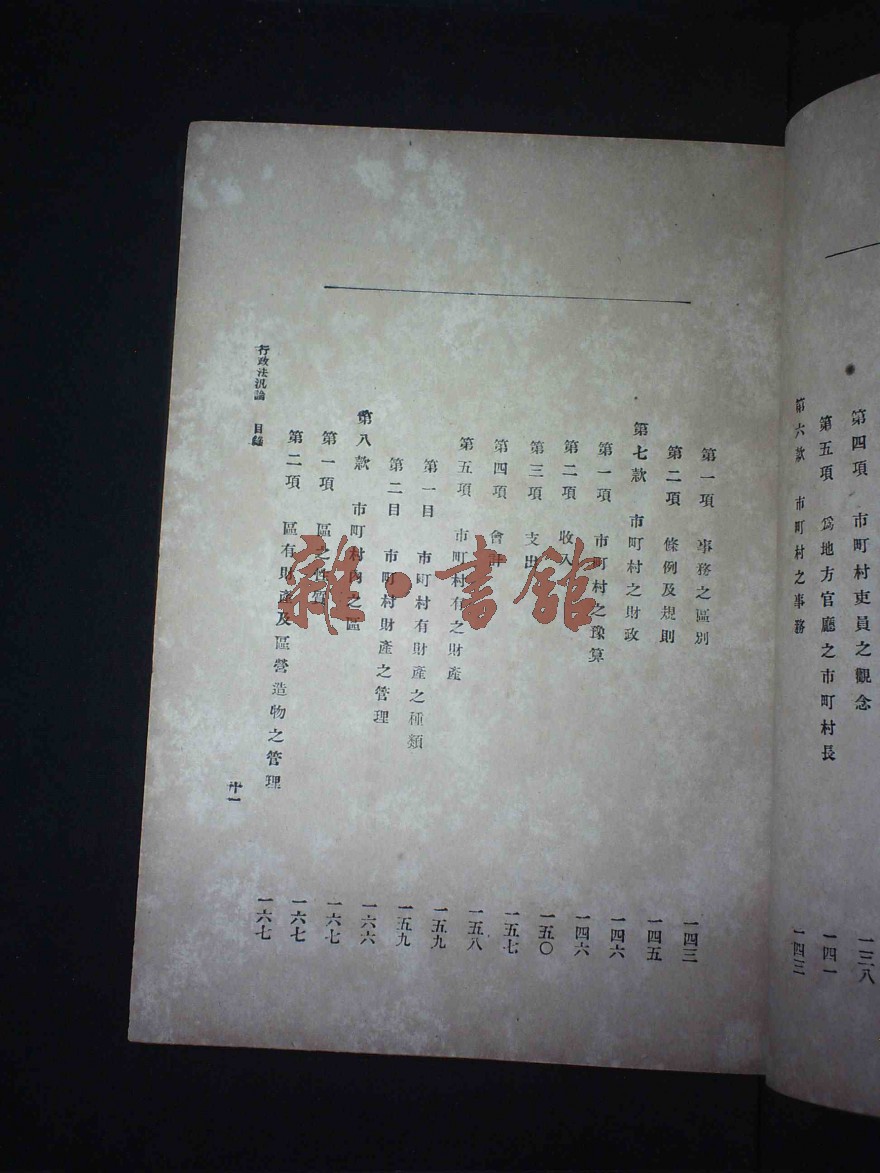 第四項　市町村吏員之觀念　一三八
第五項　爲地方官廳之市町村長　一四一
第六款　市町村之事務　一四三
第一項　事務之區別　一四三
第二項　條例及規則　一四五
第七款　市町村之財政　一四六
第一項　市町村之豫算　一四六
第二項　收入　一五〇
第三項　支出　一五七
第四項　會計　一五八
第五項　市町村有之財產　一五九
第一目　市町村有財產之種類　一五九
第二目　市町村財產之管理　一六六
第八款　市町村內之區　一六七
第一項　區之性質　一六七
第二項　區有財產及區營造物之管理　一六七
行政法汎論　目錄
十一
雜·書館